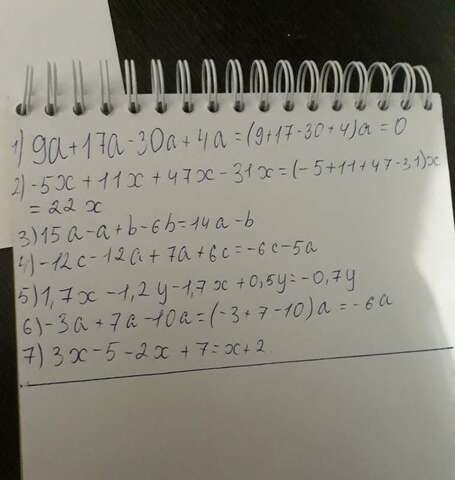 1) 9a+17a-30a+4a=(9+17-30+4)a=0
2)-5x+11x+47x-31x=(-5+11+47-31)x
=22x
3)15a-a+b-6b=14a-b
4)-12c-12a+7a+6c=-6c-5a
5)1,7x-1,2y-1,7x+0,5y=-0,7y
6)-3a+7a-10a=(-3+7-10)a=-6a
7)3x-5-2x+7=x+2